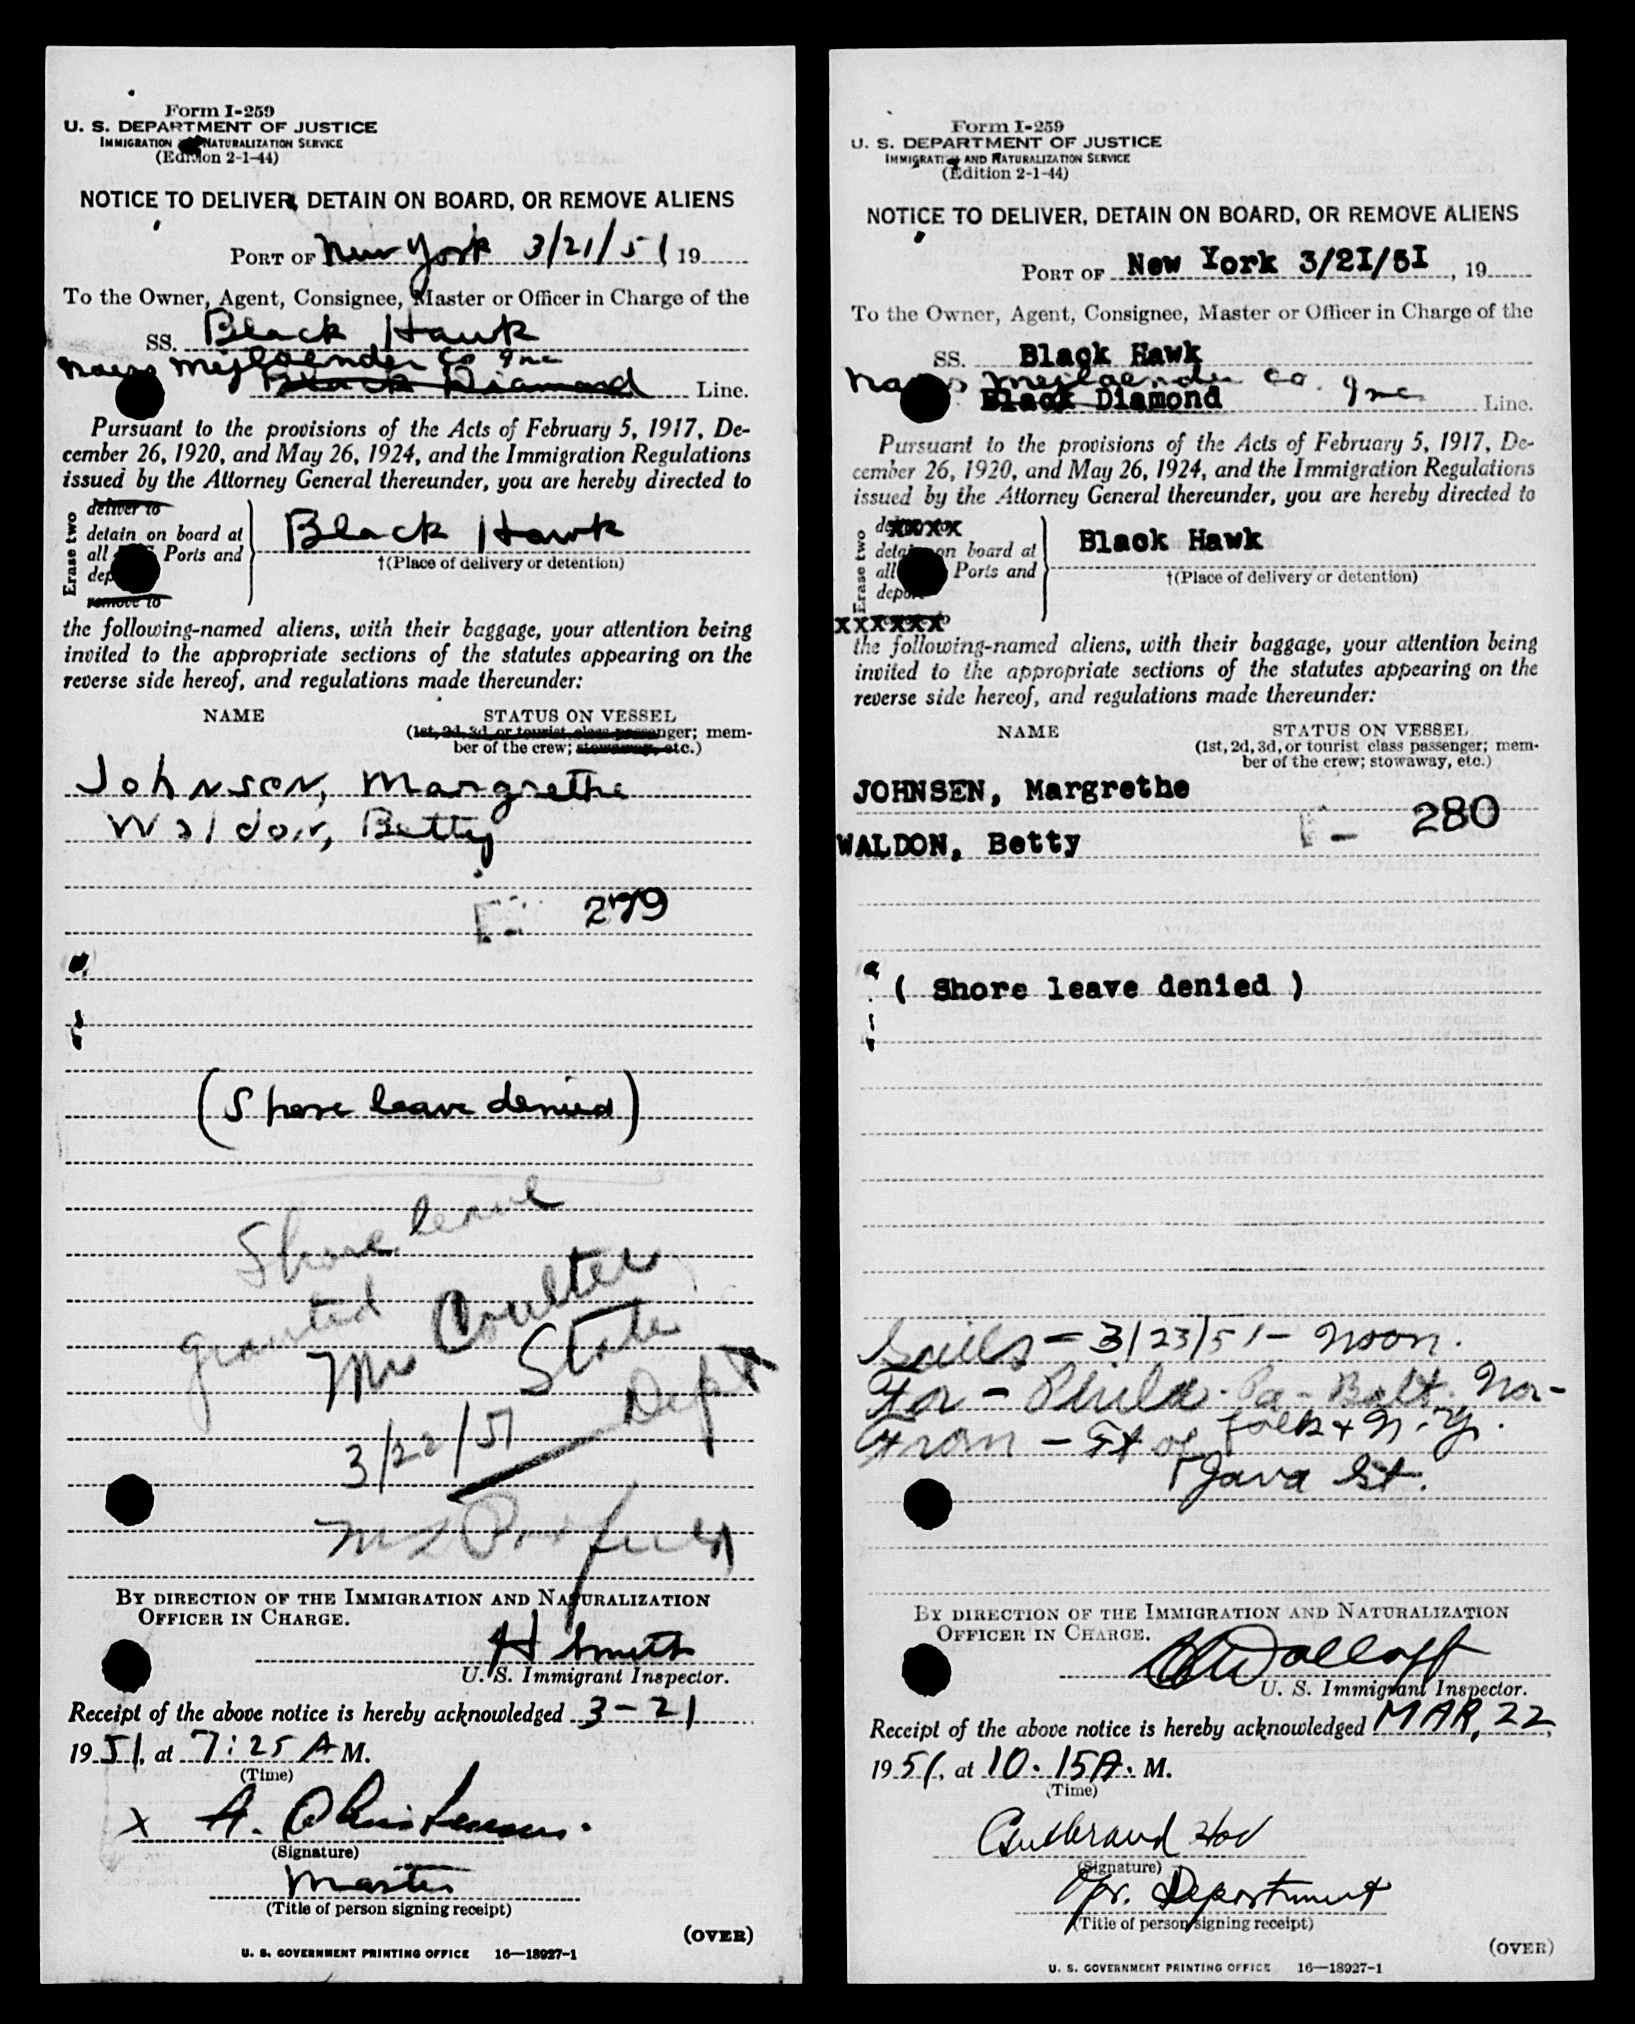 Form I-259
U. S. DEPARTMENT OF JUSTICE
IMMIGRATION NATURALIZATION SERVICE
(Edition 2-1-44)
NOTICE TO DELIVER, DETAIN ON BOARD, OR REMOVE ALIENS
PORT OF New York 3/21/51 19
To the Owner, Agent, Consignee, Master or Officer in Charge of the
SS. Black Hawk
Naess Mejlaender Co Inc
Black Diamond Line.
Pursuant to the provisions of the Acts of February 5, 1917, De-
cember 26, 1920, and May 26, 1924, and the Immigration Regulations
issued by the Attorney General thereunder, you are hereby directed to
Erase two
deliver to
detain on board at
all Ports and
dep
remove to
Black Hawk
†(Place of delivery or detention)
the following-named aliens, with their baggage, your attention being
invited to the appropriate sections of the statutes appearing on the
reverse side hereof, and regulations made thereunder:
NAME STATUS ON VESSEL
(1st, 2d, 3d, or tourist class passenger; mem-
ber of the crew; stowaway, etc.)
Johnsen, Margrethe
Waldon, Betty
279
(Shore leave denied)
Shore leave
granted
Mr Coulter
State
Dept
3/22/51
By direction of the Immigration and Naturalization
Officer in Charge.
H Smith
U. S. Immigrant Inspector.
Receipt of the above notice is hereby acknowledged 3-21
1951, at 7:25 A M.
(Time)
x A. Christensen.
(Signature)
Master
(Title of person signing receipt)
(OVER)
U. S. GOVERNMENT PRINTING OFFICE 16—18927-1
Form I-259
U. S. DEPARTMENT OF JUSTICE
IMMIGRATION AND NATURALIZATION SERVICE
(Edition 2-1-44)
NOTICE TO DELIVER, DETAIN ON BOARD, OR REMOVE ALIENS
PORT OF New York 3/2I/5I, 19
To the Owner, Agent, Consignee, Master or Officer in Charge of the
SS. Black Hawk
Naess Mejlaender Co. Inc
Black Diamond Line.
Pursuant to the provisions of the Acts of February 5, 1917, De-
cember 26, 1920, and May 26, 1924, and the Immigration Regulations
issued by the Attorney General thereunder, you are hereby directed to
Erase two
xxxx
detain on board at
all Ports and
deport
xxxxxx
Black Hawk
†(Place of delivery or detention)
the following-named aliens, with their baggage, your attention being
invited to the appropriate sections of the statutes appearing on the
reverse side hereof, and regulations made thereunder:
NAME STATUS ON VESSEL
(1st, 2d, 3d, or tourist class passenger; mem-
ber of the crew; stowaway, etc.)
JOHNSEN, Margrethe
280
WALDON, Betty
( Shore leave denied )
Sails - 3/23/51 - Noon.
For - Phila. Pa - Balt. Nor-
folk + N.Y.
From - Ft of
Java St.
By direction of the Immigration and Naturalization
Officer in Charge.
U. S. Immigrant Inspector.
Receipt of the above notice is hereby acknowledged MAR, 22,
1951, at 10.15A. M.
(Time)
(Signature)
Opr. Department
(Title of person signing receipt)
(OVER)
U. S. GOVERNMENT PRINTING OFFICE 16—18927-1